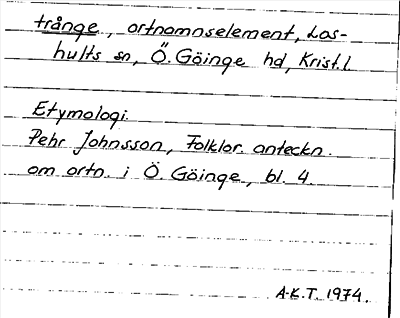 trånge, ortnamnselement, Los-
hults sn, Ö. Göinge hd, Krist.l
Etymologi.
Pehr Johnsson, Folklor. anteckn.
om ortn. i Ö. Göinge, bl. 4.
A-K.T. 1974.